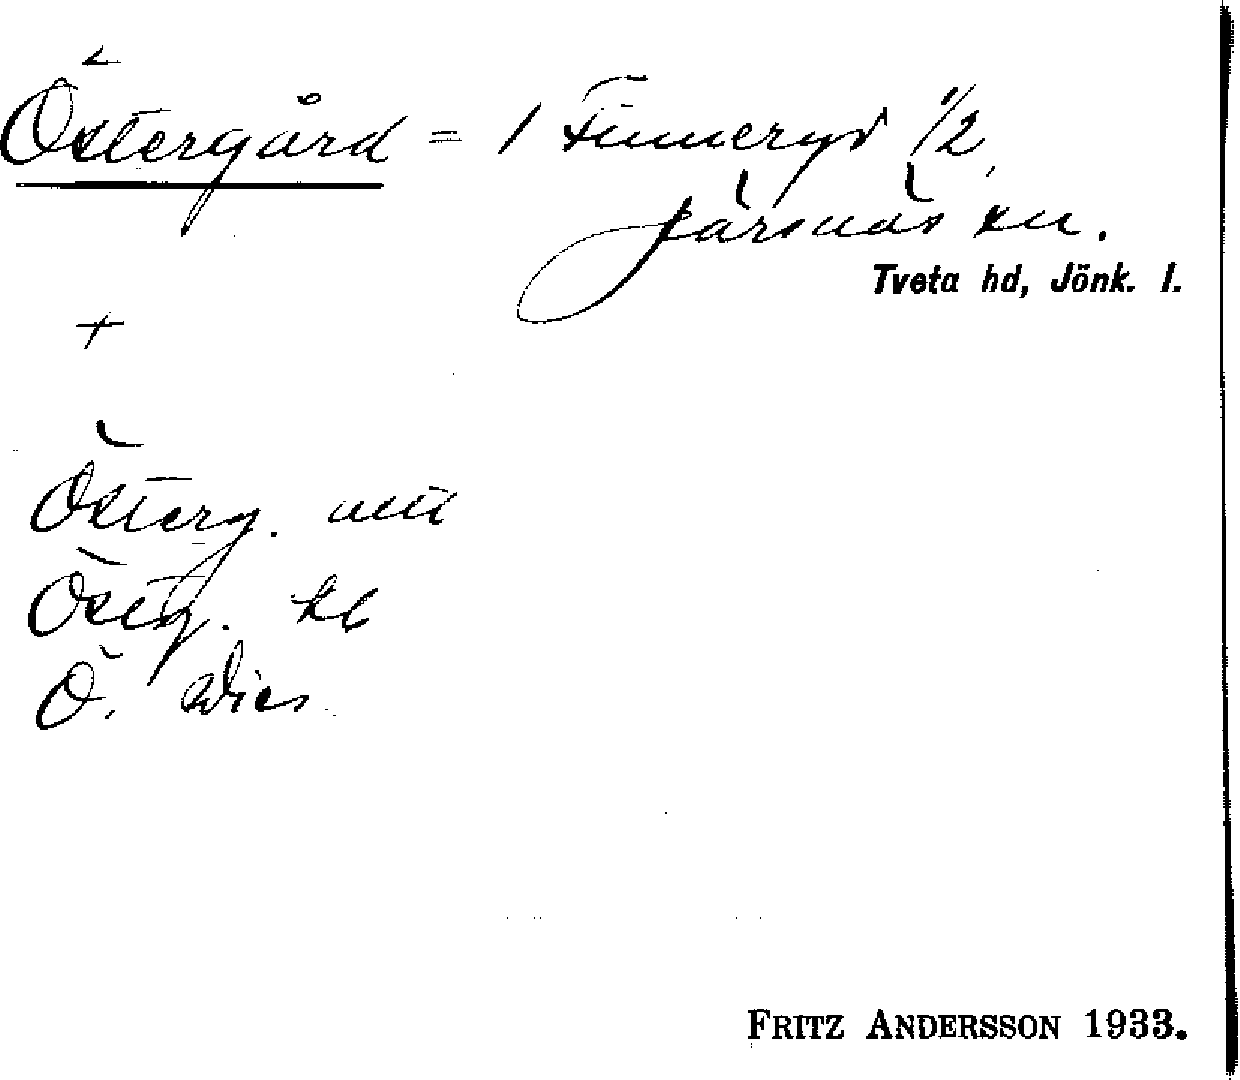 Östergård = 1 Finneryd 1/2,
Järsnäs sn.
Tveta hd, Jönk. l.
+
Österg. mtl
Östg. kb
Ö.
FRITZ ANDERSSON 1933.